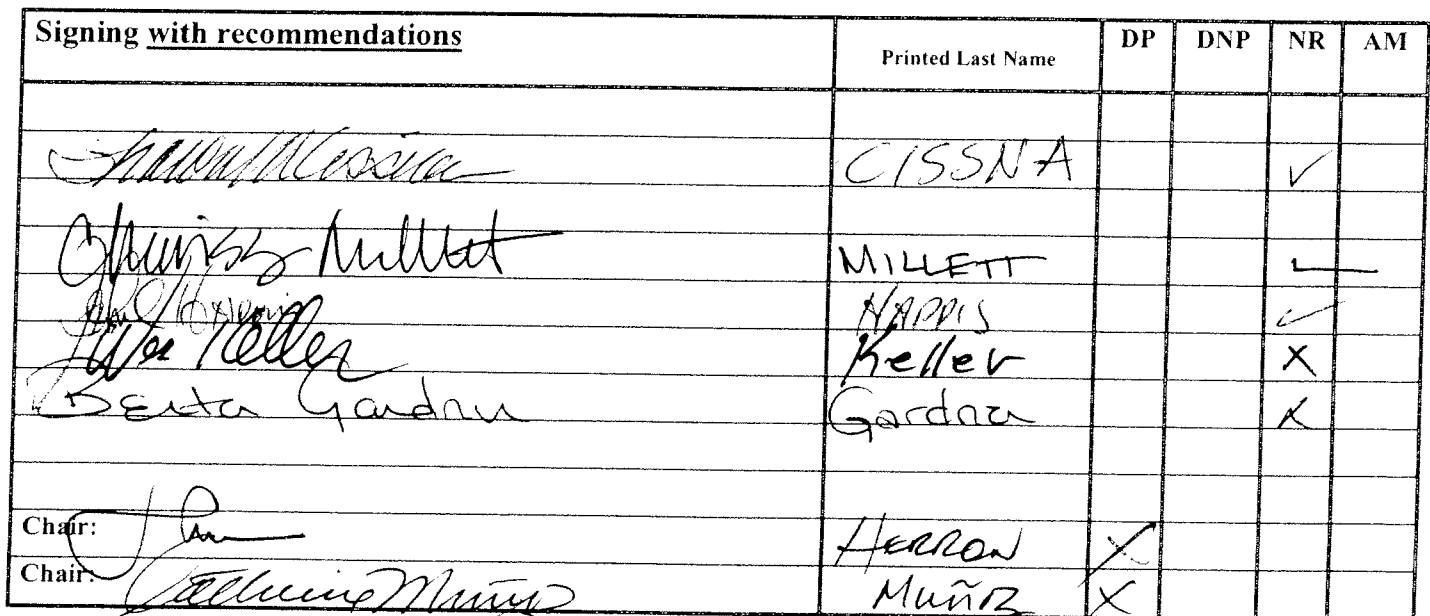 Signing with recommendations Printed Last Name DP DNP NR AM
CISSNA ✓
Millett MILLETT ✓
HARRIS ✓
Wes Keller Keller X
Berta Gardner Gardner X
Chair: HERRON X
Chair: Muñoz MUÑOZ X